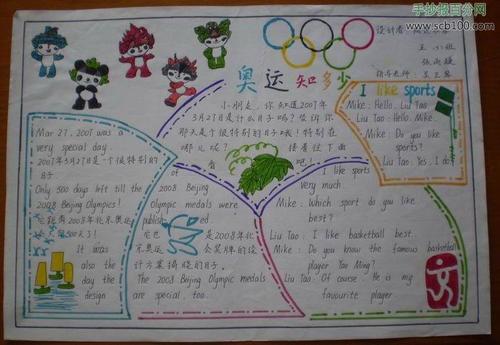 手抄报百分网
www.scb100.com
设计者:
王小旭
张雨婕
指导老师:
奥运知多少
小朋友,你知道2007年
3月27日是什么日子吗?告诉你
那天是个很特别的日子哦!特别在
哪儿呢?
接着往下看
吧!
I like sports
Mike: Hello, Liu Tao
Liu Tao: Hello, Mike.
Mike: Do you like
sports?
Liu Tao: Yes, I do.
Mar 27, 2007 was a
very special day.
2007年3月27日是一个很特别的
日子
Only 500 days left till the
2008 Beijing Olympics!
它距离2008年北京奥运
会只有500天了!
It was
also the
day the
design
of the
2008 Beijing
Olympic medals
was published.
它也是2008年北
京奥运会奖牌的设
计方案揭晓的日子。
The 2008 Beijing Olympic medals
are special, too.
I like sports
very much.
Mike: Which sport do you like
best?
Liu Tao: I like basketball best.
Mike: Do you know the famous basketball
player Yao Ming?
Liu Tao: Of course. He is my
favourite player